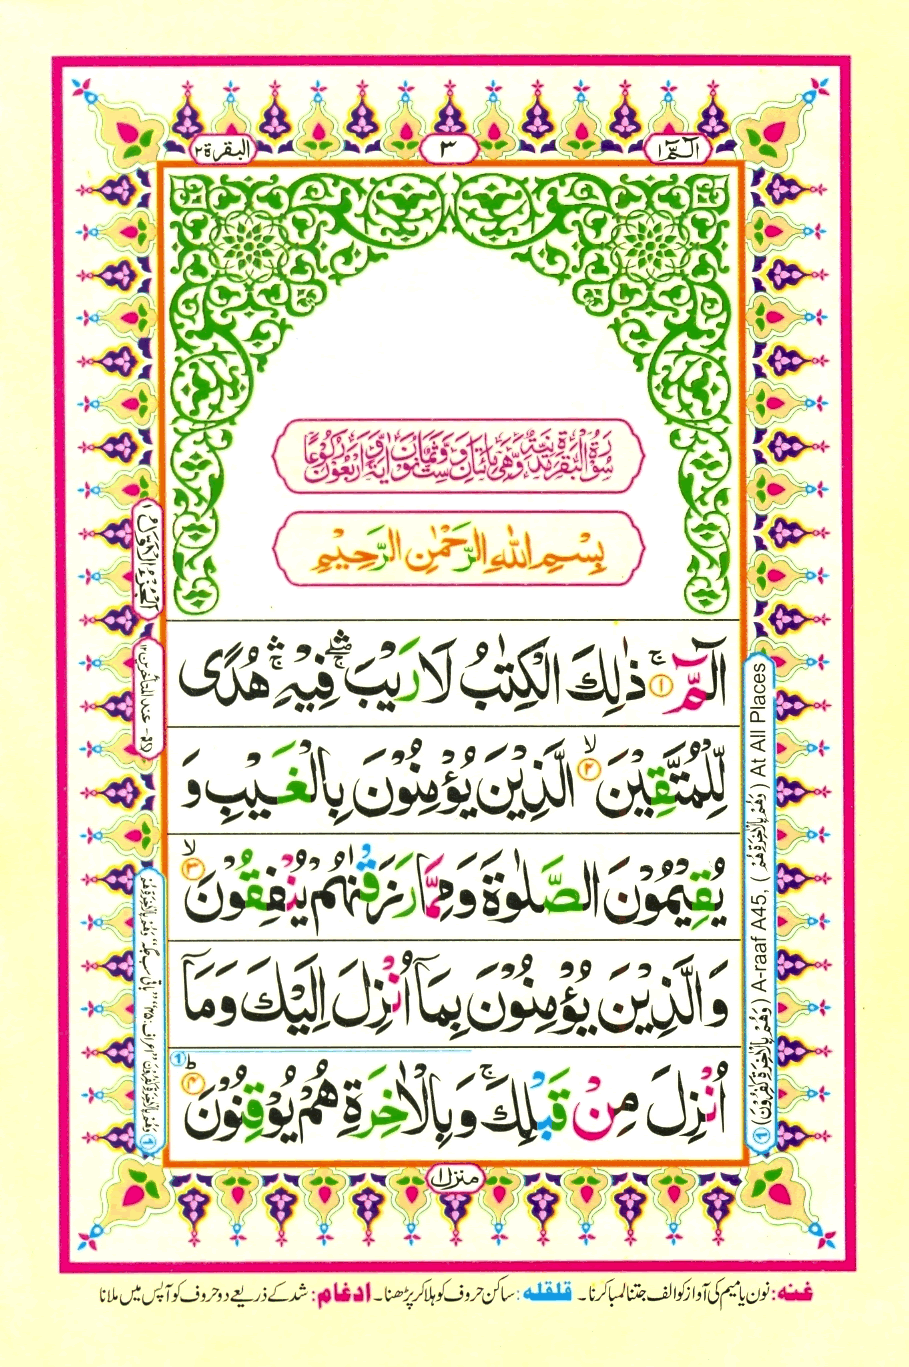 الٓمّٓ ١
٣
البقرة ٢
سُوْرَةُ الْبَقَرَةِ مَدَنِيَّةٌ وَّهِيَ مِائَتَانِ وَسِتٌّ وَّثَمَانُوْنَ اٰيَةً وَّاَرْبَعُوْنَ رُكُوْعًا
بِسْمِ اللّٰهِ الرَّحْمٰنِ الرَّحِيْمِ
الٓمّٓ ۚ ١ ذٰلِكَ الْكِتٰبُ لَا رَيْبَ ۛۖۚ فِيْهِ ۛۚ هُدًى
لِّلْمُتَّقِيْنَ ۙ ٢ الَّذِيْنَ يُؤْمِنُوْنَ بِالْغَيْبِ وَ
يُقِيْمُوْنَ الصَّلٰوةَ وَمِمَّا رَزَقْنٰهُمْ يُنْفِقُوْنَ ۙ ٣
وَالَّذِيْنَ يُؤْمِنُوْنَ بِمَاۤ اُنْزِلَ اِلَيْكَ وَمَاۤ
اُنْزِلَ مِنْ قَبْلِكَ ۚ وَبِالْاٰخِرَةِ هُمْ يُوْقِنُوْنَ ؕ ٤
① (وَهُمْ بِالْاٰخِرَةِ كٰفِرُوْنَ) A-raaf A45, (وَهُمْ بِالْاٰخِرَةِ هُمْ) At All Places
منزل ١
غنه: نون یا میم کی آواز کو الف جتنا لمبا کرنا۔ قلقله: ساکن حروف کو ہلا کر پڑھنا۔ ادغام: شد کے ذریعے دو حروف کو آپس میں ملانا